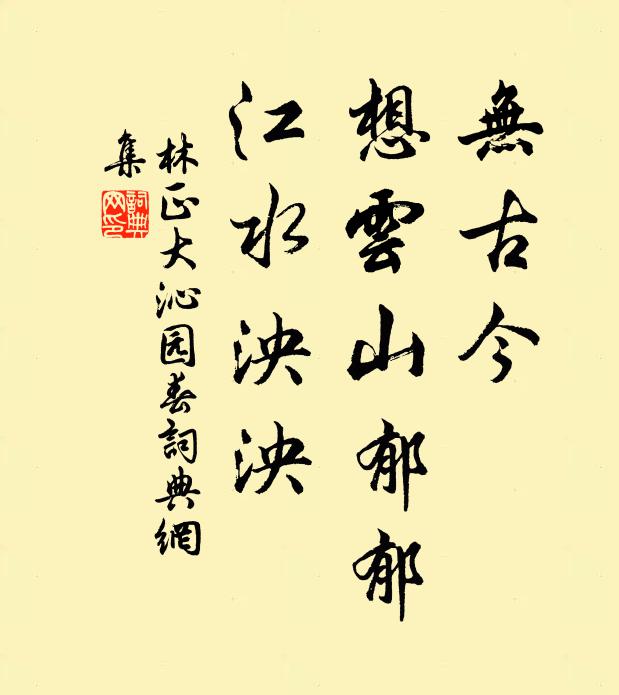 無古今
想雲山郁郁
江水泱泱
林正大沁园春詞典網
集
詞典
网印